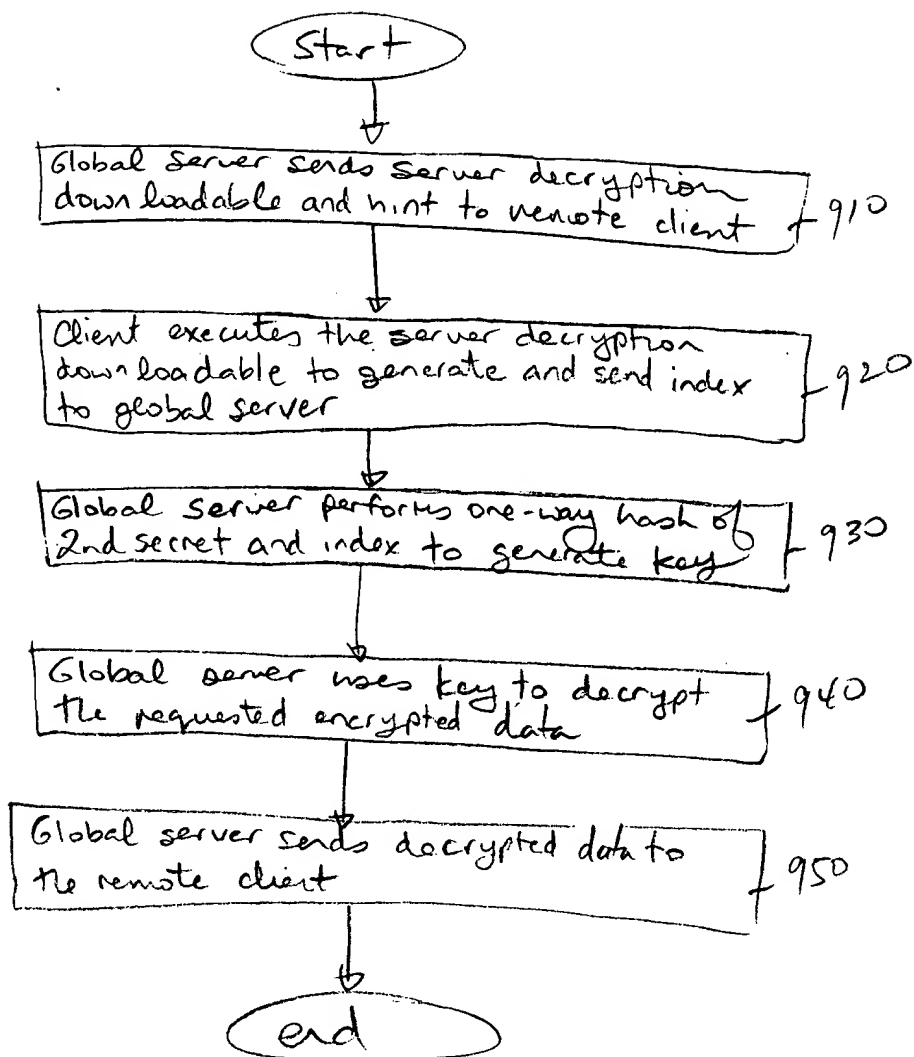 Start
Global server sends server decryption
downloadable and hint to remote client
910
Client executes the server decryption
downloadable to generate and send index
to global server
920
Global server performs one-way hash of
2nd secret and index to generate key
930
Global server uses key to decrypt
the requested encrypted data
940
Global server sends decrypted data to
the remote client
950
end